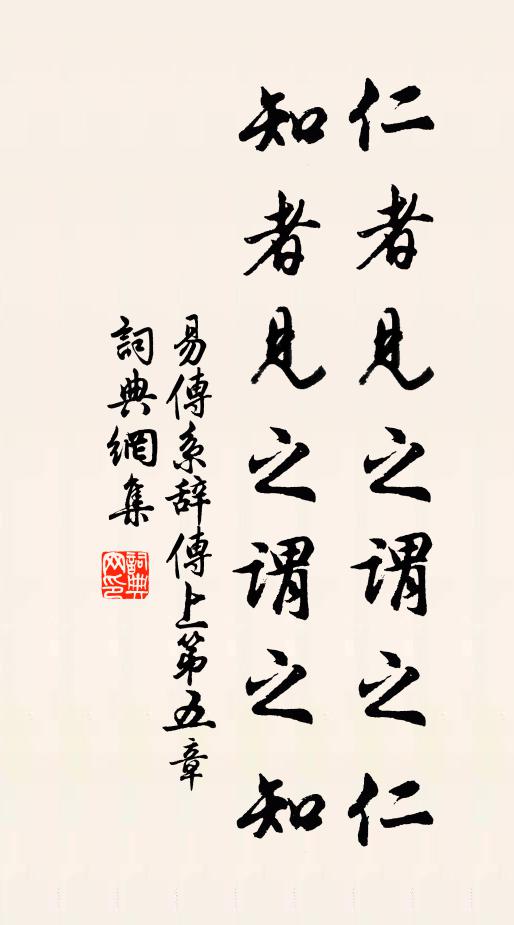 仁者見之謂之仁
知者見之謂之知
易傳系辞傳上第五章
詞典網集
詞典網印